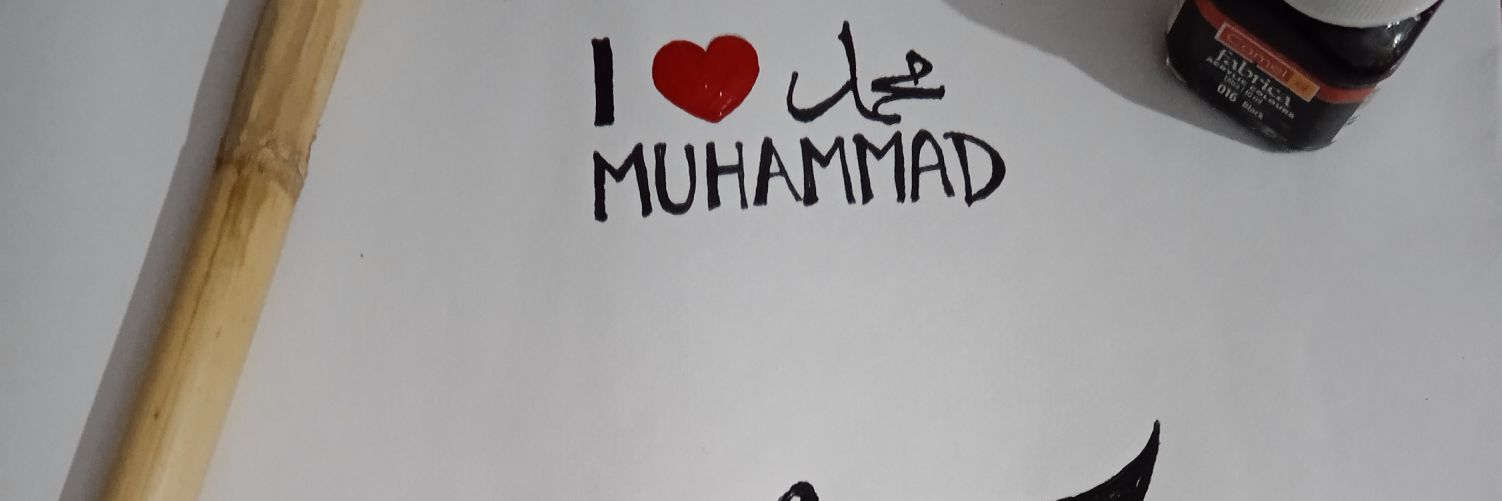 I ❤ محمد
MUHAMMAD
Camel
fabrica
ACRYLIC COLOURS
016 Black